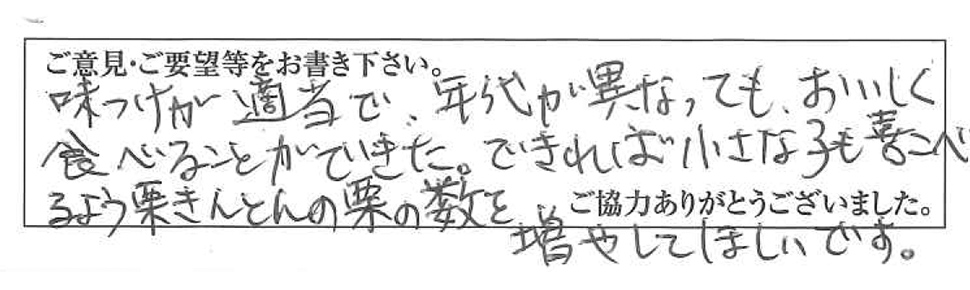 ご意見・ご要望等をお書き下さい。
味つけが適当で、年代が異なっても、おいしく
食べることができた。できれば小さな子も喜こべ
るよう栗きんとんの栗の数を
ご協力ありがとうございました。
増やしてほしいです。